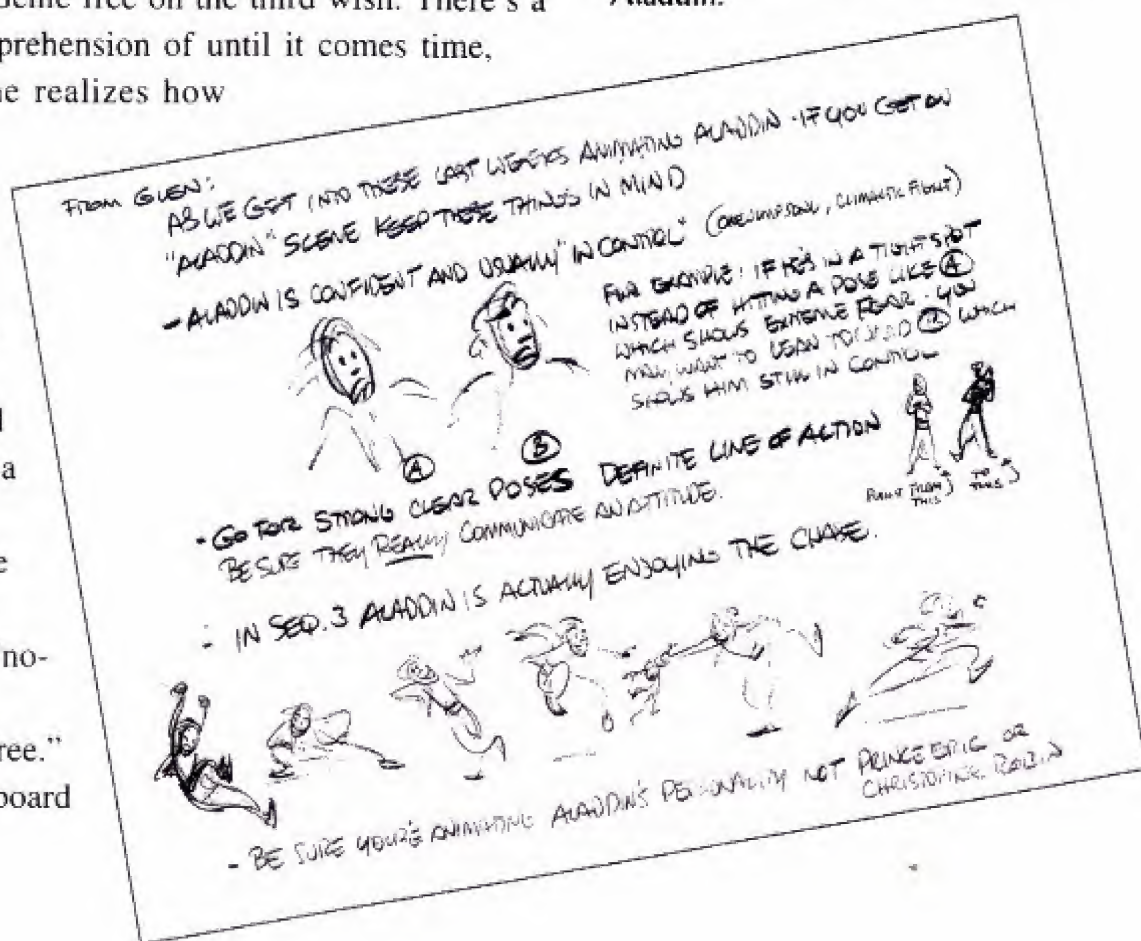 free on the third wish. There's a
Aladdin.
prehension of until it comes time,
he realizes how
a
e
no-
ree."
board
FROM GLEN:
AS WE GET INTO THESE LAST WEEKS ANIMATING ALADDIN - IF YOU GET AN
"ALADDIN" SCENE KEEP THESE THINGS IN MIND
- ALADDIN IS CONFIDENT AND USUALLY "IN CONTROL" (ONE JUMP SONG, CLIMACTIC FIGHT)
FOR EXAMPLE: IF HE'S IN A TIGHT SPOT
INSTEAD OF HITTING A POSE LIKE Ⓐ
WHICH SHOWS EXTREME FEAR. YOU
MAY WANT TO LEAN TOWARD Ⓑ WHICH
SHOWS HIM STILL IN CONTROL
Ⓐ Ⓑ
- GO FOR STRONG CLEAR POSES DEFINITE LINE OF ACTION
BE SURE THEY REALLY COMMUNICATE AN ATTITUDE.
FROM THIS TO THIS
- IN SEQ. 3 ALADDIN IS ACTUALLY ENJOYING THE CHASE.
- BE SURE YOU'RE ANIMATING ALADDIN'S PERSONALITY NOT PRINCE ERIC OR
CHRISTOPHER ROBIN